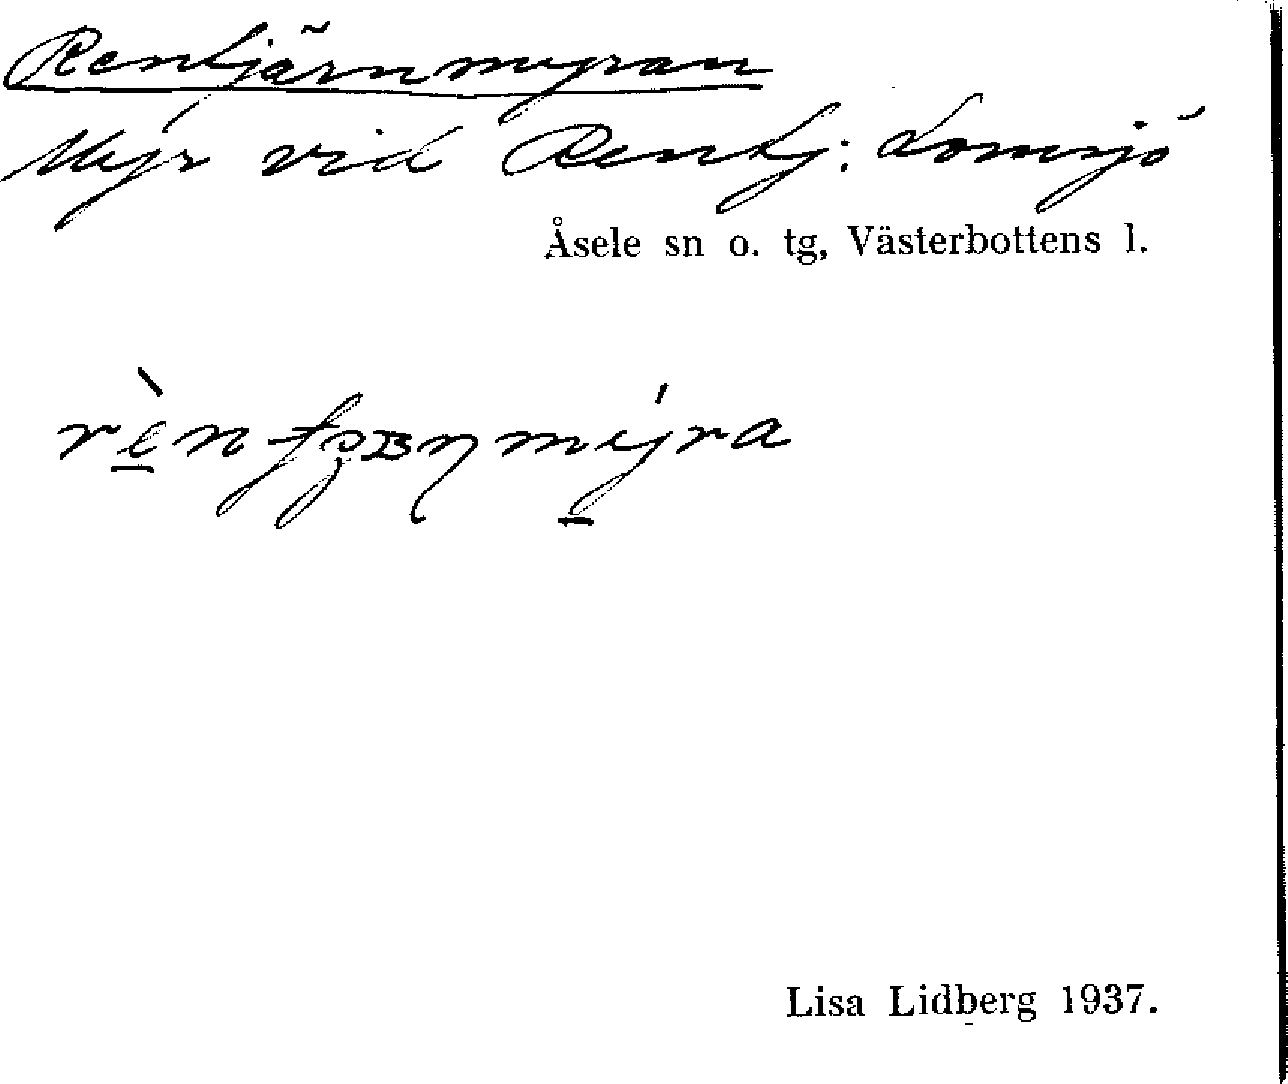 Rentjärnmyran
Myr vid Rentj: Lomsjö
Åsele sn o. tg, Västerbottens l.
Lisa Lidberg 1937.